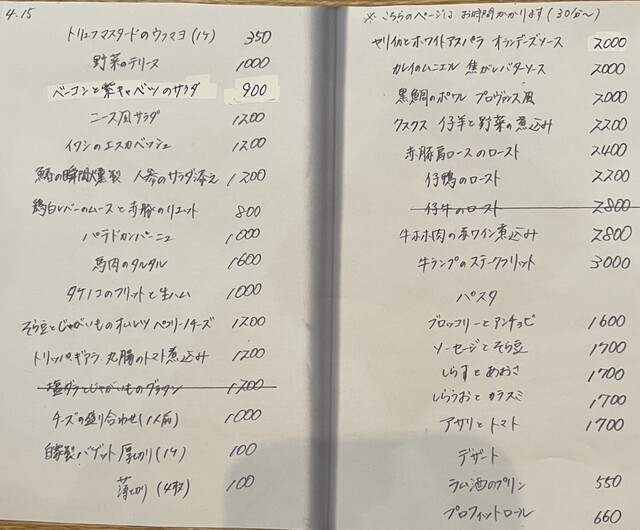 4.15
トリュフマスタードのウフマヨ(1ケ) 350
野菜のテリース 1000
ベーコンと紫キャベツのサラダ 900
ニース風サラダ 1200
イワシのエスカベッシュ 1200
鰆の瞬間燻製 人参のサラダ添え 1200
鶏白レバーのムースと赤豚のリエット 800
パテドカンパーニュ 1000
馬肉のタルタル 1600
タケノコのフリットと生ハム 1000
そら豆とじゃがいものオムレツ ペコリーノチーズ 1200
トリッパ、ギアラ、丸腸のトマト煮込み 1200
塩ダラとじゃがいものグラタン 1200
チーズの盛り合わせ(1人前) 1000
自家製バゲット 厚切り(1ケ) 100
薄切り(4枚) 100
※こちらのページは お時間かかります(30分〜)
ヤリイカとホワイトアスパラ オランデーズソース 2000
カレイのムニエル 焦がしバターソース 2000
黒鯛のポワレ プロヴァンス風 2000
クスクス 仔羊と野菜の煮込み 2200
赤豚肩ロースのロースト 2400
仔鴨のロースト 2200
仔牛のロースト 2800
牛ホホ肉の赤ワイン煮込み 2800
牛ランプのステークフリット 3000
パスタ
ブロッコリーとアンチョビ 1600
ソーセージとそら豆 1700
しらすとあおさ 1700
しらうおとカラスミ 1700
アサリとトマト 1700
デザート
ラム酒のプリン 550
プロフィットロール 660